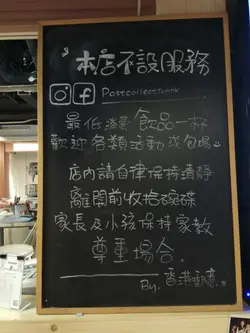 本店不設服務
最低消費 飲品一杯
歡迎各類活動或包場
店內請自律保持清靜
離開前收拾碗碟
家長及小孩保持家教
尊重場合.
By.